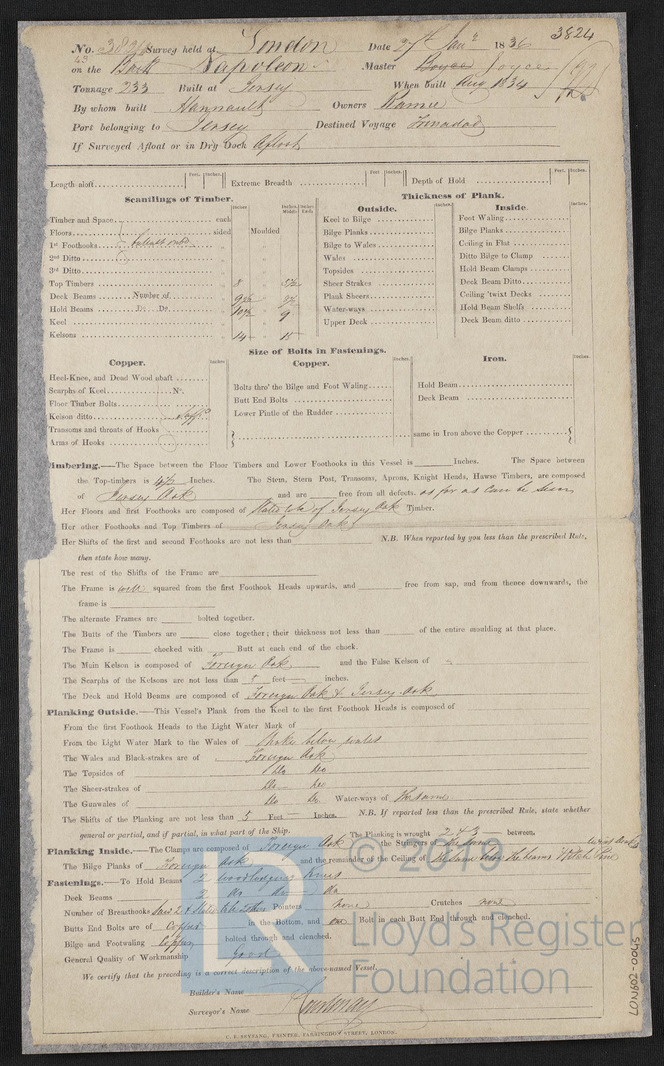 3824
No. 3824 Survey held at London Date 27th Jany 1836
on the Bark Napoleon Master Joyce
Tonnage 233 Built at Jersey When built Aug 1834
By whom built Owners
Port belonging to Jersey Destined Voyage Trinidad
If Surveyed Afloat or in Dry Dock Afloat
Length aloft Feet. Inches. Extreme Breadth Feet Inches. Depth of Hold Feet. Inches.
Scantlings of Timber.
Timber and Space each
Floors sided Moulded
1st Foothooks
2nd Ditto
3rd Ditto
Top Timbers 8
Deck Beams Number of
Hold Beams Do. Do. 9
Keel
Kelsons 14 15
Thickness of Plank.
Outside.
Keel to Bilge
Bilge Planks
Bilge to Wales
Wales
Topsides
Sheer Strakes
Plank Sheers
Water-ways
Upper Deck
Inside.
Foot Waling
Bilge Planks
Ceiling in Flat
Ditto Bilge to Clamp
Hold Beam Clamps
Deck Beam Ditto
Ceiling 'twixt Decks
Hold Beam Shelfs
Deck Beam ditto
Size of Bolts in Fastenings.
Copper.
Heel-Knee, and Dead Wood abaft
Scarphs of Keel No.
Floor Timber Bolts
Kelson ditto
Transoms and throats of Hooks
Arms of Hooks
Copper.
Bolts thro' the Bilge and Foot Waling
Butt End Bolts
Lower Pintle of the Rudder
Iron.
Hold Beam
Deck Beam
same in Iron above the Copper
Timbering.—The Space between the Floor Timbers and Lower Foothooks in this Vessel is Inches. The Space between
the Top-timbers is Inches. The Stem, Stern Post, Transoms, Aprons, Knight Heads, Hawse Timbers, are composed
of Jersey Oak and are free from all defects. as far as can be seen
Her Floors and first Foothooks are composed of Stated to be of Jersey Oak Timber.
Her other Foothooks and Top Timbers of Jersey Oak
Her Shifts of the first and second Foothooks are not less than N.B. When reported by you less than the prescribed Rule,
then state how many.
The rest of the Shifts of the Frame are
The Frame is well squared from the first Foothook Heads upwards, and free from sap, and from thence downwards, the
frame is
The alternate Frames are bolted together.
The Butts of the Timbers are close together; their thickness not less than of the entire moulding at that place.
The Frame is chocked with Butt at each end of the chock.
The Main Kelson is composed of Foreign Oak and the False Kelson of
The Scarphs of the Kelsons are not less than 5 feet — inches.
The Deck and Hold Beams are composed of Foreign Oak & Jersey Oak
Planking Outside.—This Vessel's Plank from the Keel to the first Foothook Heads is composed of
From the first Foothook Heads to the Light Water Mark of
From the Light Water Mark to the Wales of Strake below wales
The Wales and Black-strakes are of Foreign Oak
The Topsides of Do Do
The Sheer-strakes of Do Do
The Gunwales of Do Do Water-ways of the same
The Shifts of the Planking are not less than 5 Feet — Inches. N.B. If reported less than the prescribed Rule, state whether
general or partial, and if partial, in what part of the Ship. The Planking is wrought 2 & 3 between.
Planking Inside.—The Clamps are composed of Foreign Oak the Stringers of the same
The Bilge Planks of Foreign Oak and the remainder of the Ceiling of the same below the beams Pitch Pine
Fastenings.—To Hold Beams 2 wood lodging Knees
Deck Beams 2 do do do
Number of Breasthooks Pointers none Crutches none
Butts End Bolts are of Copper in the Bottom, and one Bolt in each Butt End through and clenched.
Bilge and Footwaling Copper bolted through and clenched.
General Quality of Workmanship Good
We certify that the preceding is a correct description of the above-named Vessel.
Builder's Name
Surveyor's Name Courtenay
C. F. SEYFANG, PRINTER, FARRINGDON STREET, LONDON.
LR
© 2019
Lloyd's Register
Foundation
LON602-0045